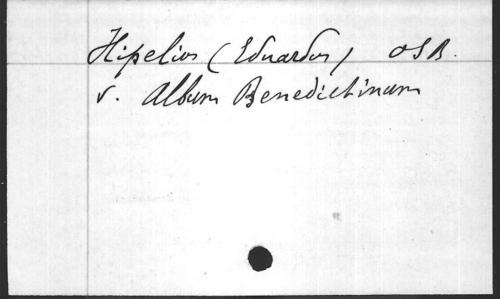 Hipelius (Eduardus) OSB.
v. Album Benedictinum